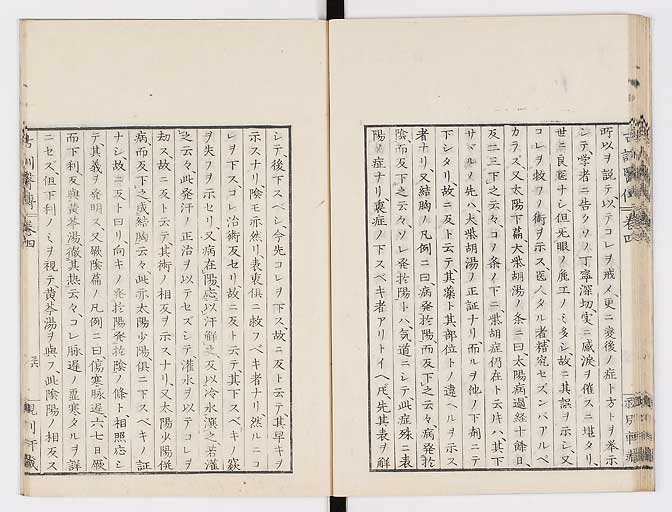 所以ヲ説テ以テコレヲ戒メ更ニ変後ノ症ト方トヲ挙示
シテ学者ニ告クソノ丁寧深切実ニ感涙ヲ催スニ堪タリ
世ニ良医ナシ但无眼ノ麁工ノミ多シ故ニ其誤ヲ示シ又
コレヲ救フノ術ヲ示ス医人タル者稽究セズンバアルベ
カラズ又太陽下篇大柴胡湯ノ条ニ曰太陽病過経十餘日
反二三下之云々コノ条ノ下ニ柴胡症仍在ト云片ハ其下
サヾルノ先ハ大柴胡湯ノ正証ナリ而ルヲ他ノ下剤ニテ
下シタリ故ニ反ト云テ其薬ト其部位トノ違ヘルヲ示ス
者ナリ又結胸ノ凡例ニ曰病発於陽而反下之云々病発於
陰而反下之云々ソレ発於陽トハ気道ニシテ此症殊ニ表
陽ノ症ナリ裏症ノ下スベキ者アリトイヘ𪜈先其表ヲ解
シテ後下スベシ今先コレヲ下ス故ニ反ト云テ其早キヲ
示スナリ陰モ亦然リ表裏俱ニ救フベキ者ナリ然ルニコ
レヲ下スコレ治術反セリ故ニ反ト云テ其下スベキノ
ヲ失フヲ示セリ又病在陽応以汗解之反以冷水潠之若灌
之云々此発汗ノ正治ヲ以テセズシテ灌水ヲ以テコレヲ
劫ス故ニ反ト云テ其術ノ相反ヲ示スナリ又太陽少陽併
病而反下之成結胸云々此亦太陽少陽俱ニ下スベキノ証
ナシ故ニ反ト曰リ向キノ発於陽発於陰ノ條ト相照応シ
テ其義ヲ発明ス又厥陰篇ノ凡例ニ曰傷寒脉遅六七日厥
而下利反與黄芩湯徹其熱云々コレ脉遅ノ虚寒タルヲ詳
ニセズ但下利ノミヲ視テ黄芩湯ヲ與フ此陰陽ノ相反ス